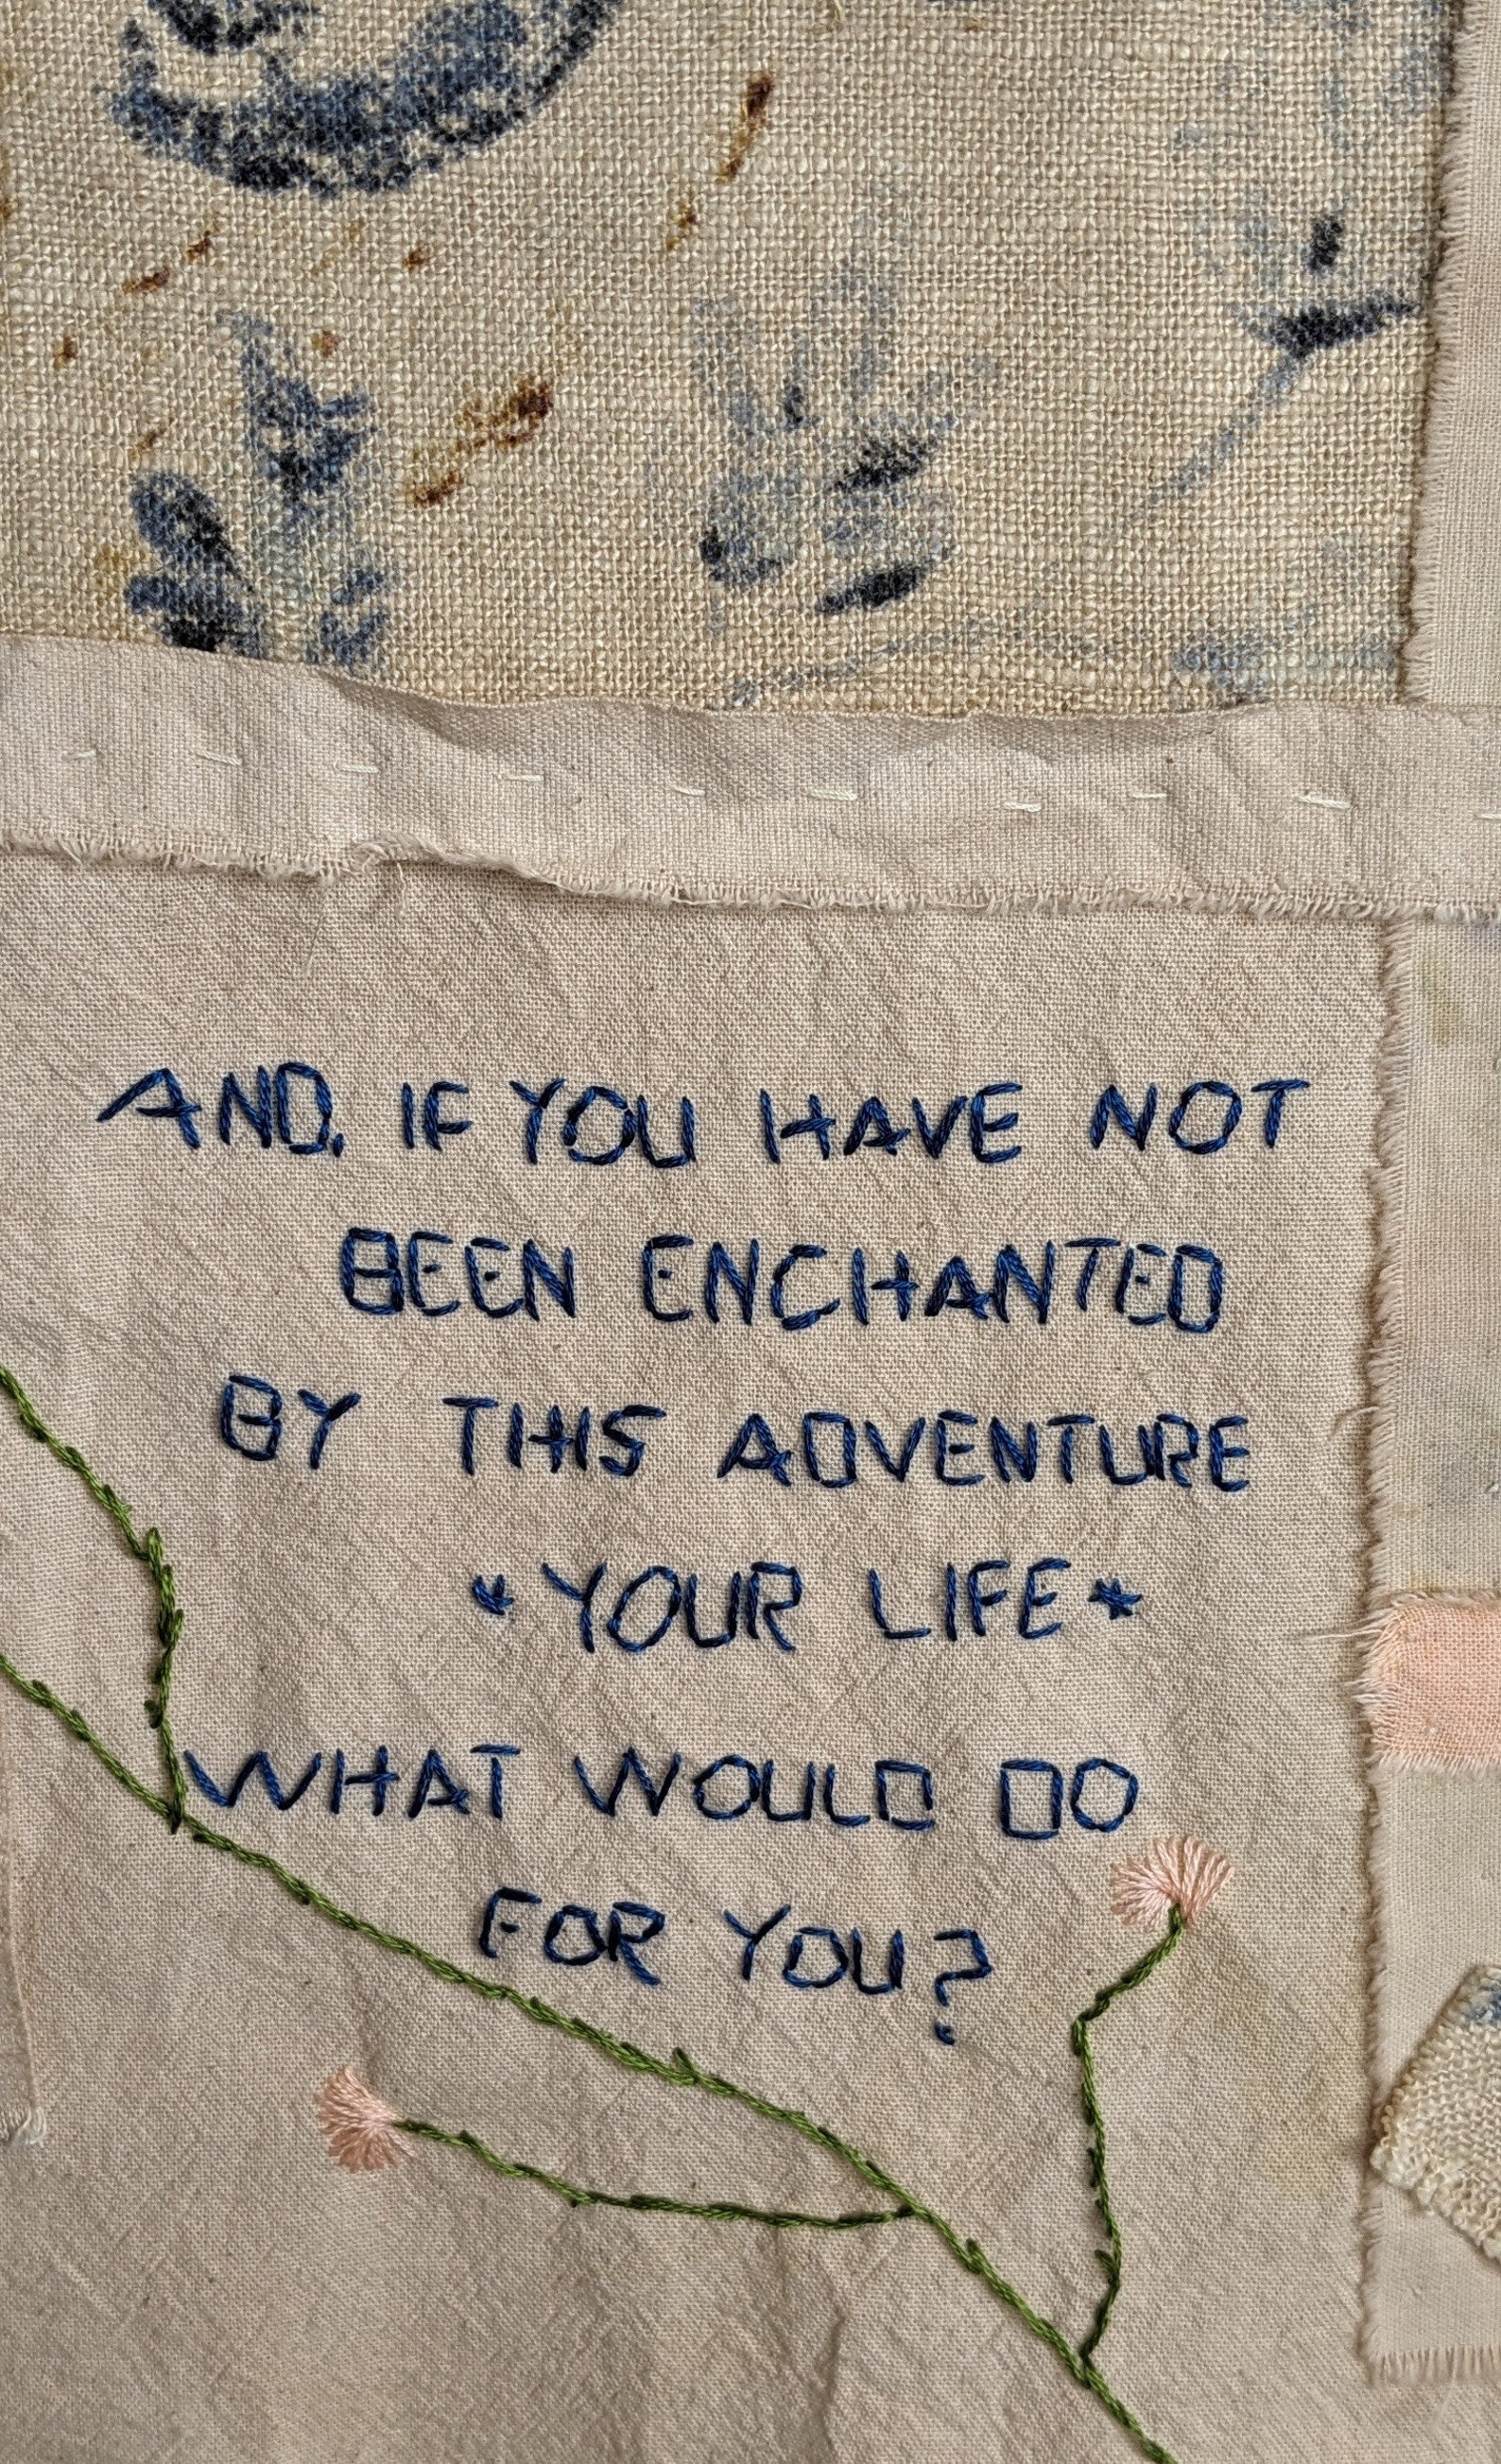 AND, IF YOU HAVE NOT
BEEN ENCHANTED
BY THIS ADVENTURE
*YOUR LIFE*
WHAT WOULD DO
FOR YOU?